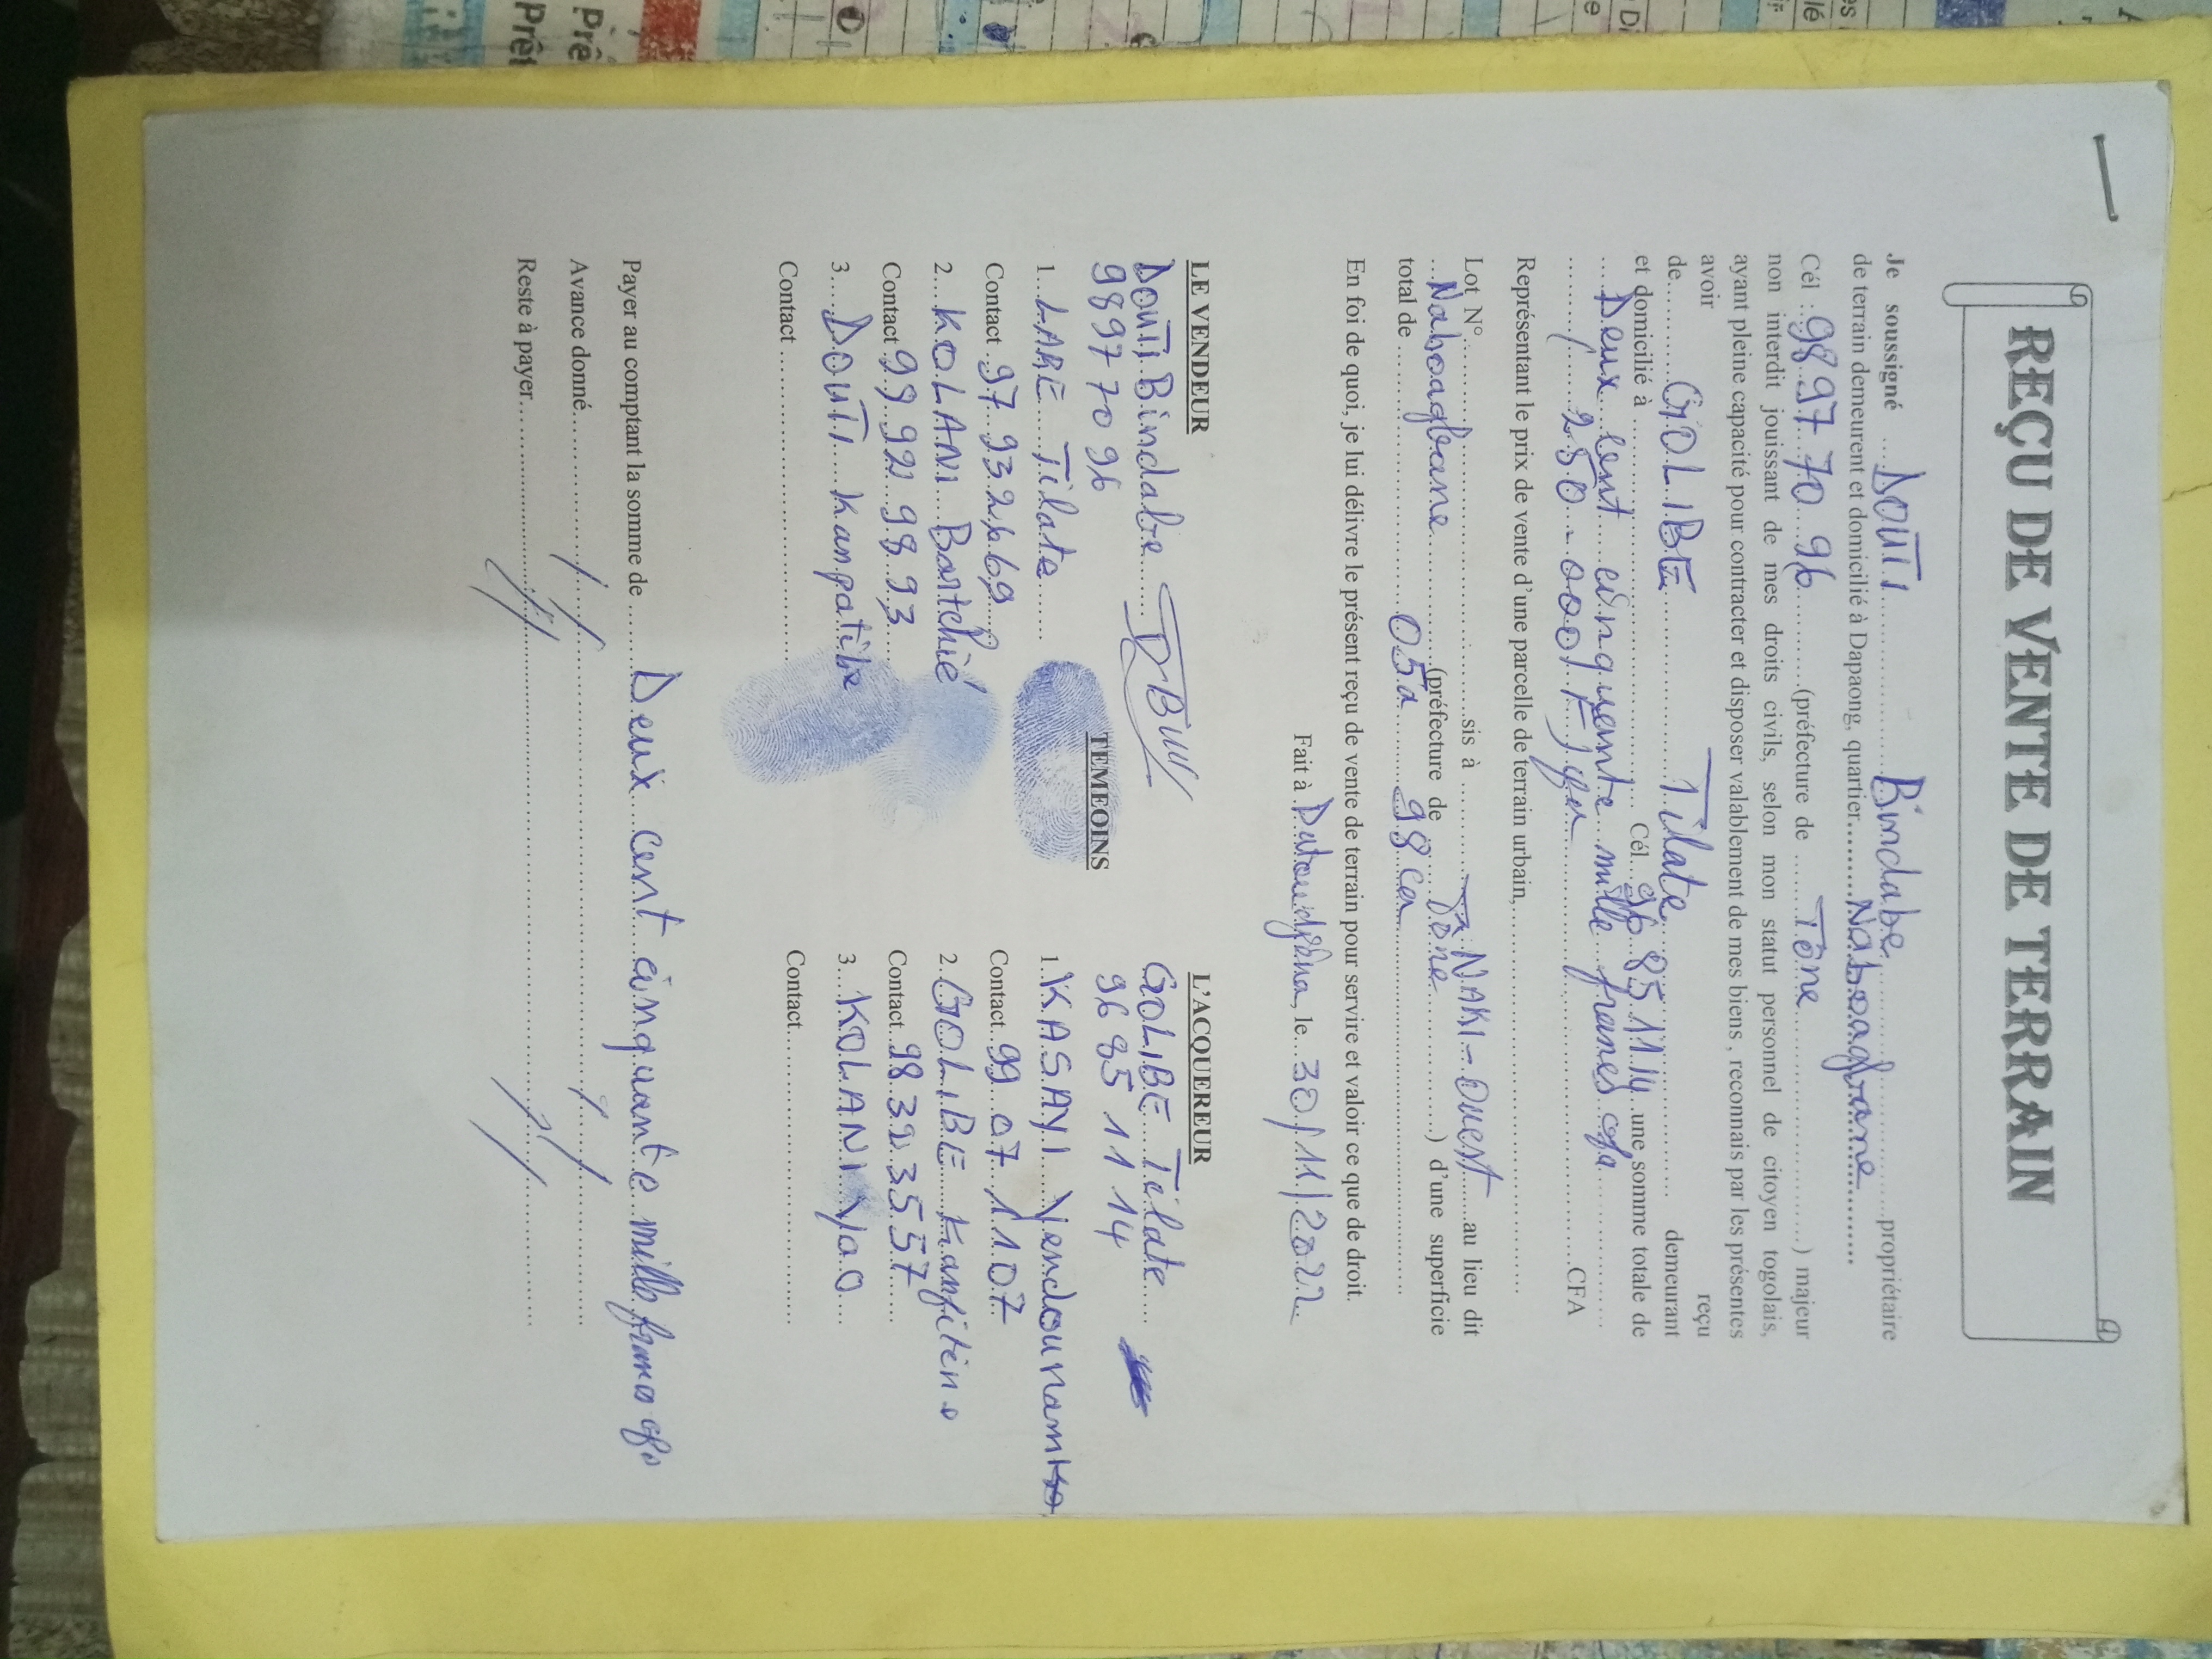 REÇU DE VENTE DE TERRAIN
Je soussigné ....DOUTI.................Bindabe.................propriétaire
de terrain demeurent et domicilié à Dapaong, quartier.........Naboagbane..........
Cél :..98 97 70 96..........(préfecture de .......Tône.....................) majeur
non interdit jouissant de mes droits civils, selon mon statut personnel de citoyen togolais,
ayant pleine capacité pour contracter et disposer valablement de mes biens , reconnais par les présentes
avoir reçu
de............GOLIBE.....................Tilate..................... demeurant
et domicilié à ............................................ Cél...96 85 11 14..une somme totale de
....Deux cent cinquante mille francs cfa..........
........../......250.000/F/............................CFA
Représentant le prix de vente d'une parcelle de terrain urbain,.......................................
Lot N°............................................sis à ............NAKI-OUEST......au lieu dit
...Naboagbane..................(préfecture de .......Tône...............) d'une superficie
total de ...............................05a..........98ca...............................
En foi de quoi, je lui délivre le présent reçu de vente de terrain pour servire et valoir ce que de droit.
Fait à , le...30/11/2022
LE VENDEUR
L'ACQUEREUR
DOUTI Bindabe......
GOLIBE....Tilate.....
98 97 70 96
96 85 11 14
TEMEOINS
1...LARE.....Tilate.......
1.KASAYI....Yendounam
Contact ..97 93 26 69
Contact..99 07 11 07
2...KOLANI...Bartchié
2..GOLIBE.....
Contact 99 92 98 93....
Contact..98 32 35 57......
3....DOUTI....Kampatibe
3....KOLANI...Yao....
Contact ..............................
Contact..............................
Payer au comptant la somme de ........Deux...cent cinquante..mille francs cfa
Avance donné............/../....................................../../............
Reste à payer...................//......................................//.............